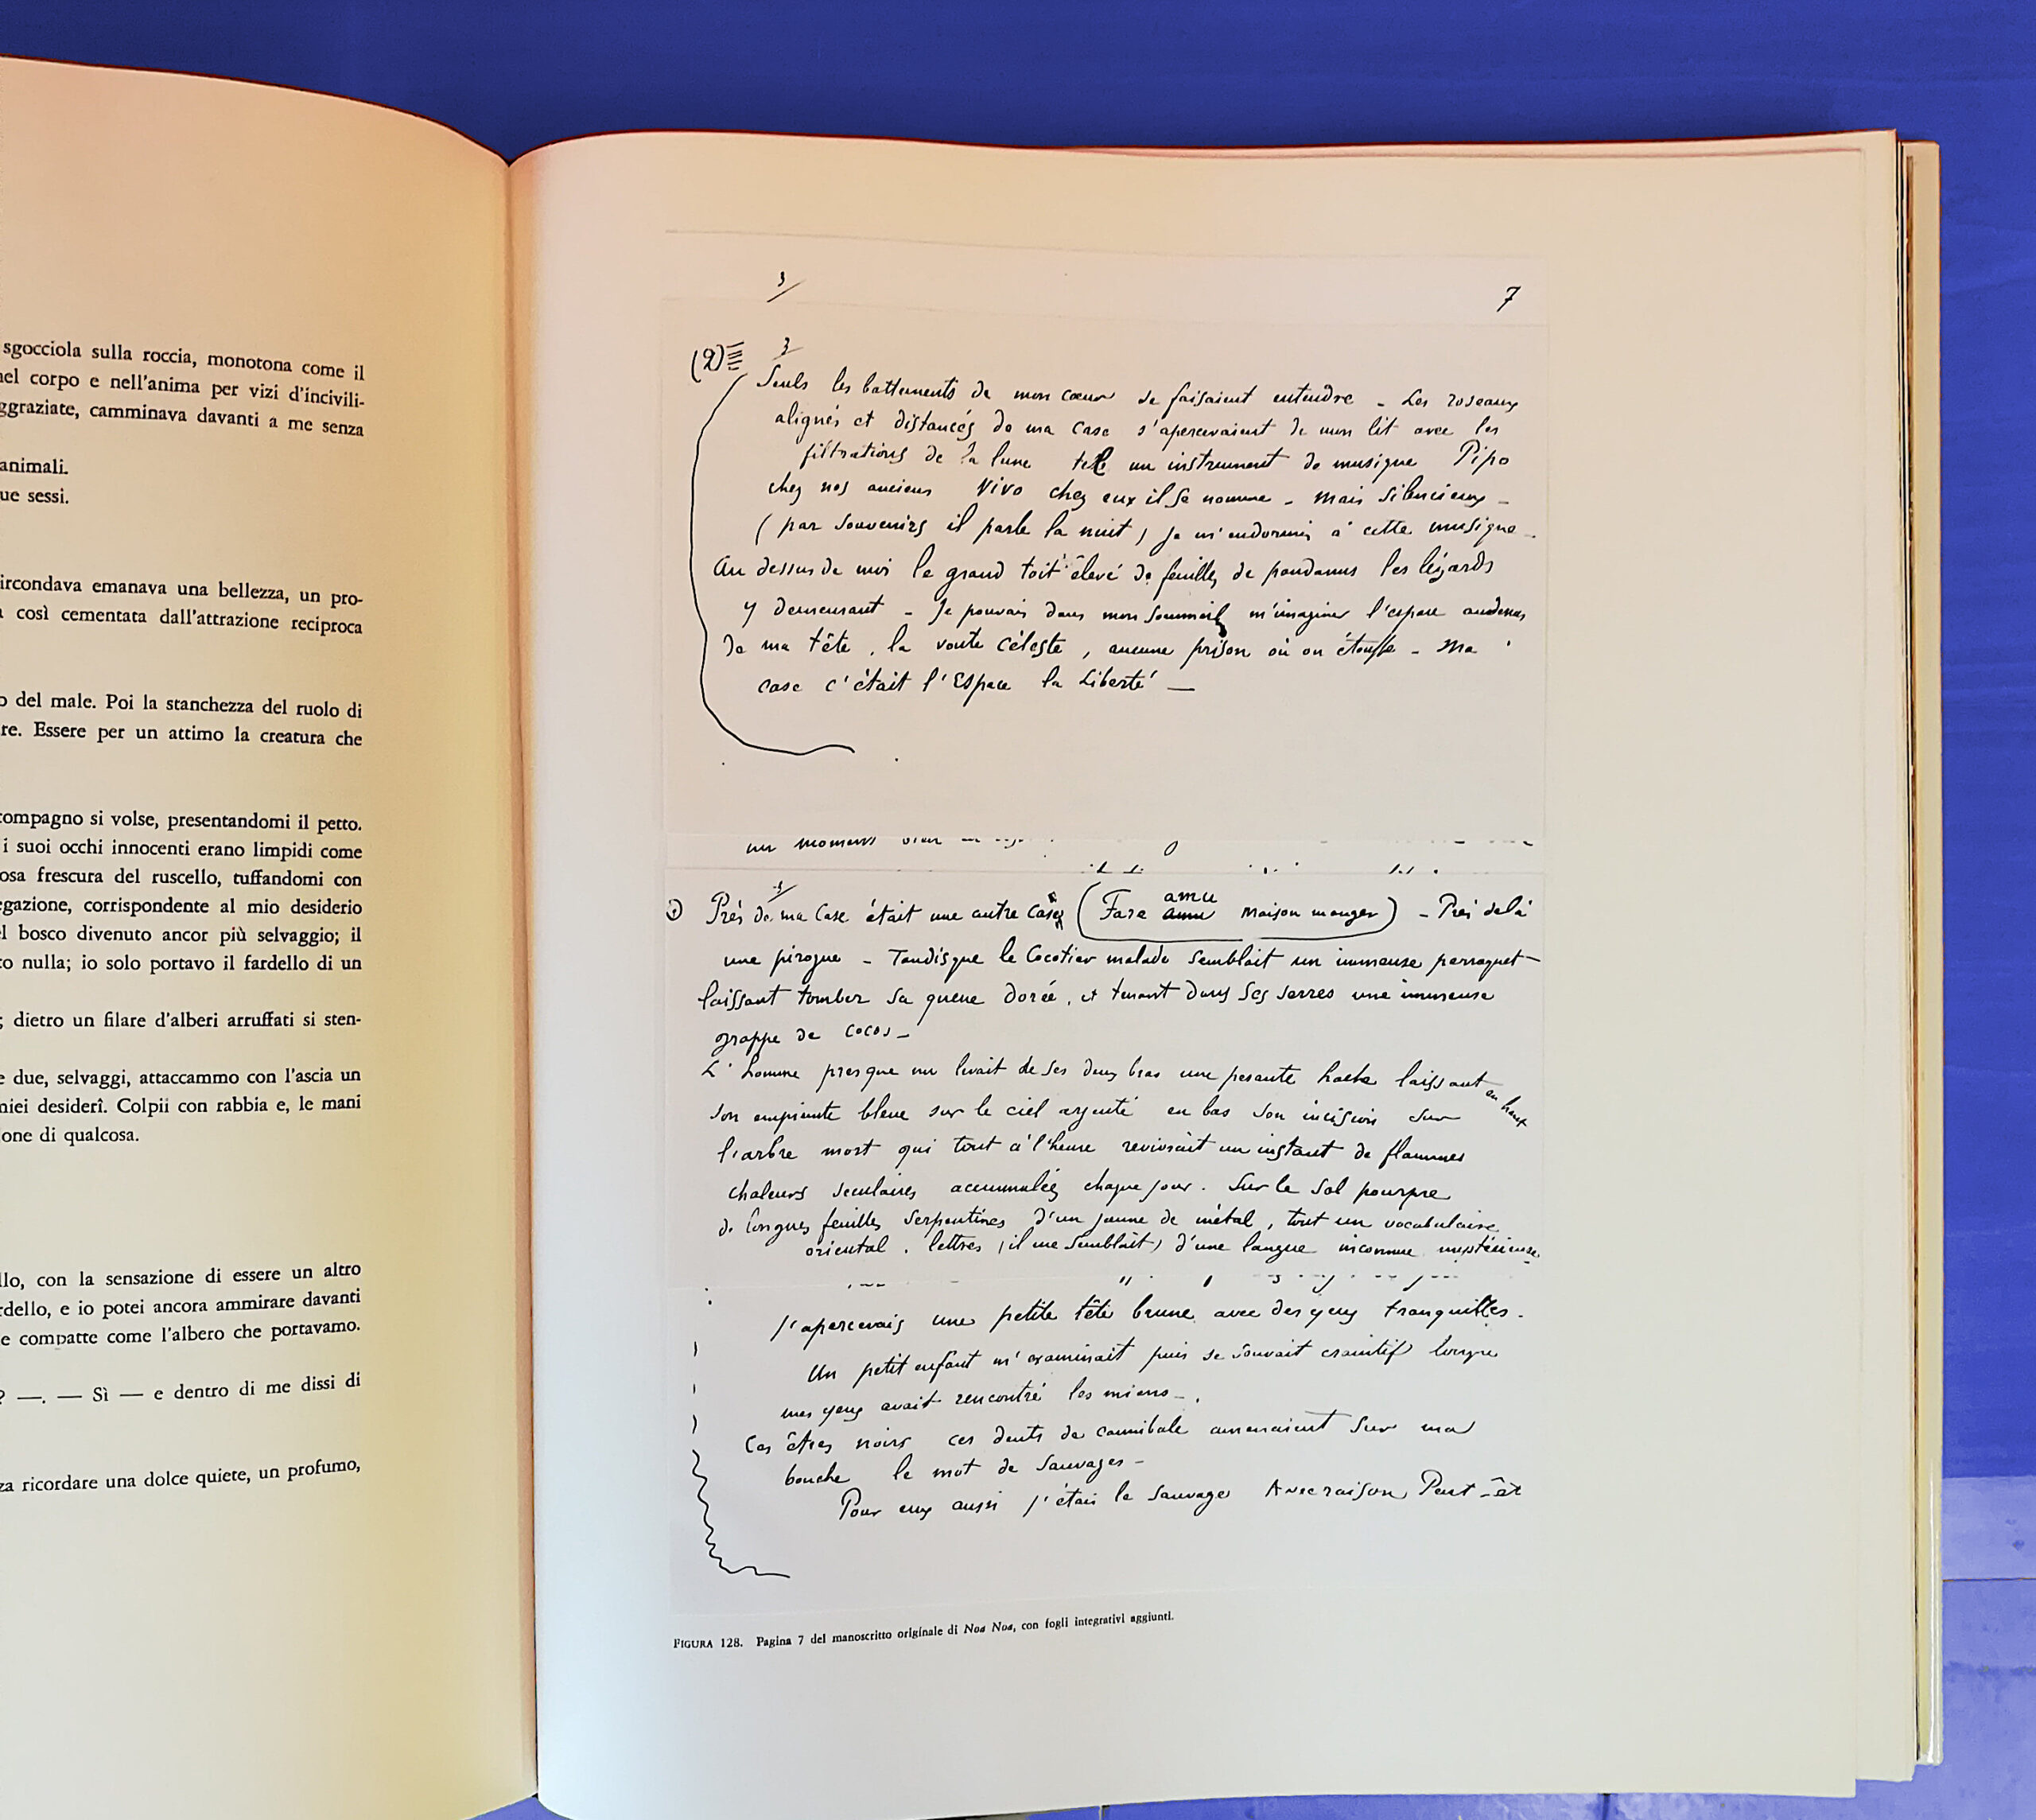 sgocciola sulla roccia, monotona come il
nel corpo e nell'anima per vizi d'incivili-
ggraziate, camminava davanti a me senza
animali.
ue sessi.
ircondava emanava una bellezza, un pro-
a così cementata dall'attrazione reciproca
o del male. Poi la stanchezza del ruolo di
re. Essere per un attimo la creatura che
compagno si volse, presentandomi il petto.
i suoi occhi innocenti erano limpidi come
osa frescura del ruscello, tuffandomi con
egazione, corrispondente al mio desiderio
l bosco divenuto ancor più selvaggio; il
to nulla; io solo portavo il fardello di un
; dietro un filare d'alberi arruffati si sten-
e due, selvaggi, attaccammo con l'ascia un
miei desiderî. Colpii con rabbia e, le mani
one di qualcosa.
llo, con la sensazione di essere un altro
rdello, e io potei ancora ammirare davanti
e compatte come l'albero che portavamo.
? —. — Sì — e dentro di me dissi di
za ricordare una dolce quiete, un profumo,
3/ 7
(2) 3/
Seuls les battements de mon cœur se faisaient entendre - Les roseaux
alignés et distancés de ma case s'apercevaient de mon lit avec les
filtrations de la lune tel un instrument de musique Pipo
chez nos anciens Vivo chez eux il se nomme - mais silencieux -
(par souvenirs il parle la nuit) Je m'endormis à cette musique -
Au dessus de moi le grand toit élevé de feuilles de pandanus les lézards
y demeurant - Je pouvais dans mon sommeil m'imaginer l'espace audessus
de ma tête, la voute céleste, aucune prison où on étouffe - Ma
case c'était l'Espace la Liberté —
un moment bien
Près de ma Case était une autre case (Fare amu maison manger) - Près delà
une pirogue - Tandisque le Cocotier malade semblait un immense perroquet
laissant tomber sa queue dorée, et tenant dans ses serres une immense
grappe de cocos -
L'homme presque nu levait de ses deux bras une pesante hache laissant en haut
son empreinte bleue sur le ciel argenté en bas son incision sur
l'arbre mort qui tout à l'heure revivrait un instant de flammes
chaleurs séculaires accumulées chaque jour. Sur le sol pourpre
de longues feuilles serpentines d'un jaune de métal, tout un vocabulaire
oriental. lettres (il me semblait) d'une langue inconnue mystérieuse
J'apercevais une petite tête brune avec des yeux tranquilles.
Un petit enfant m'examinait puis se sauvait craintif lorsque
mes yeux avait rencontré les miens -.
Ces êtres noirs ces dents de cannibale amenaient sur ma
bouche le mot de Sauvages -
Pour eux aussi j'étais le Sauvage Avec raison Peut-êt
FIGURA 128. Pagina 7 del manoscritto originale di Noa Noa, con fogli integrativi aggiunti.